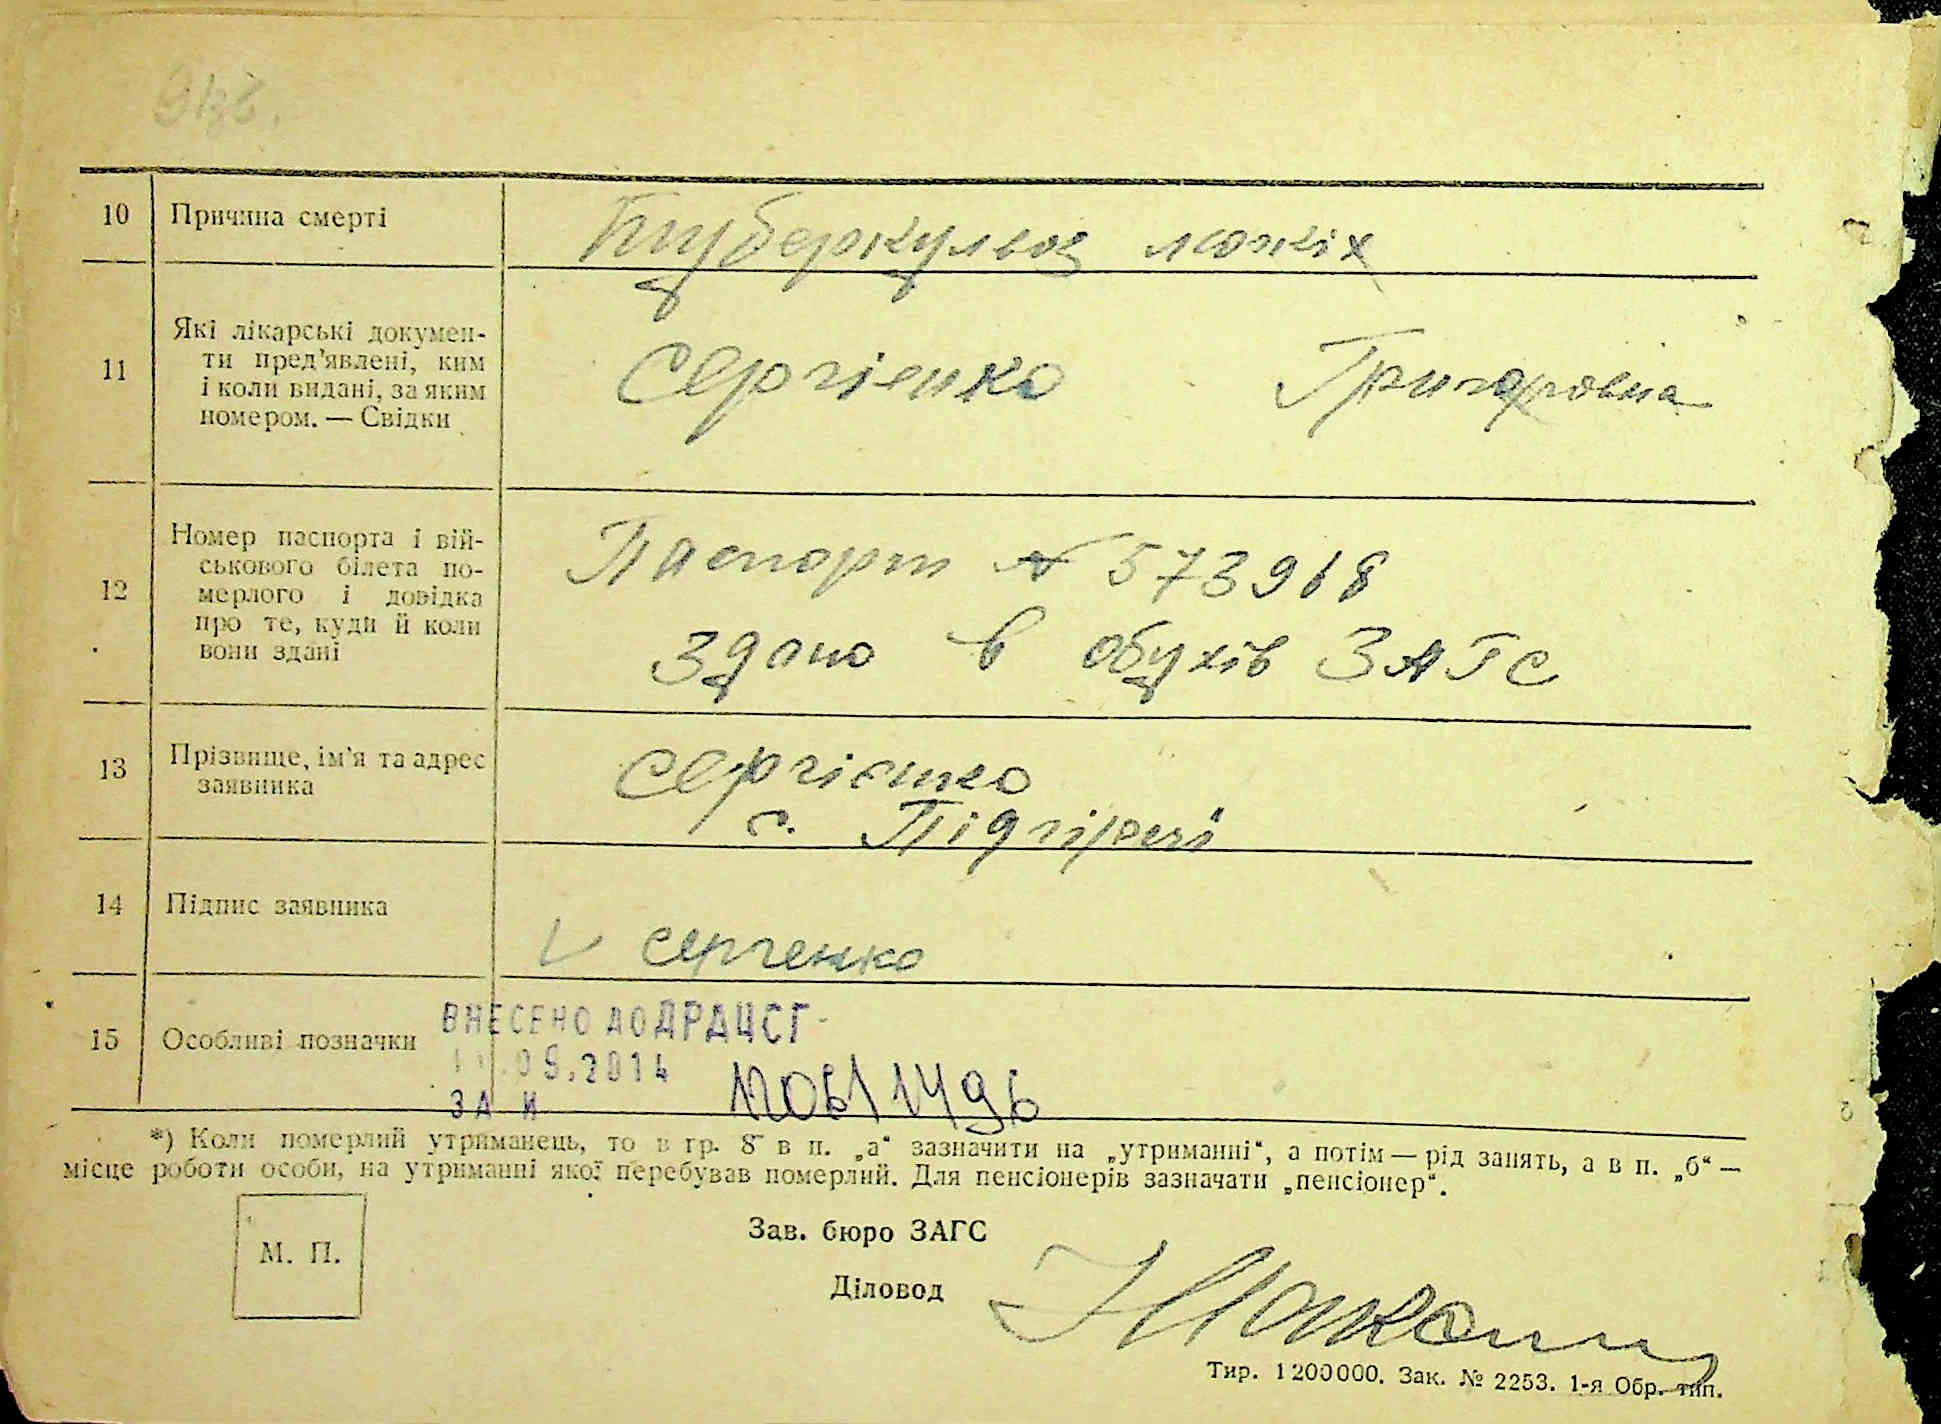 10 Причина смерті Туберкульоз лохкіх
11 Які лікарські докумен-
ти пред'явлені, ким
і коли видані, за яким
номером. — Свідки
Сергієнко Григоровна
12 Номер паспорта і вій-
ськового білета по-
мерлого і довідка
про те, куди й коли
вони здані
Паспорт № 573968
Здано в обухів ЗАГС
13 Прізвище, ім'я та адрес
заявника
Сергієнко
с. Підгірці
14 Підпис заявника
Сергенко
15 Особливі позначки
ВНЕСЕНО ДО ДРАЦСГ
.09.2014
ЗА И 120611496
*) Коли померлий утриманець, то в гр. 8 в п. „а“ зазначити на „утриманні“, а потім — рід занять, а в п. „б“ —
місце роботи особи, на утриманні якої перебував померлий. Для пенсіонерів зазначати „пенсіонер“.
М. П.
Зав. бюро ЗАГС
Діловод
Тир. 1200000. Зак. № 2253. 1-я Обр. тип.